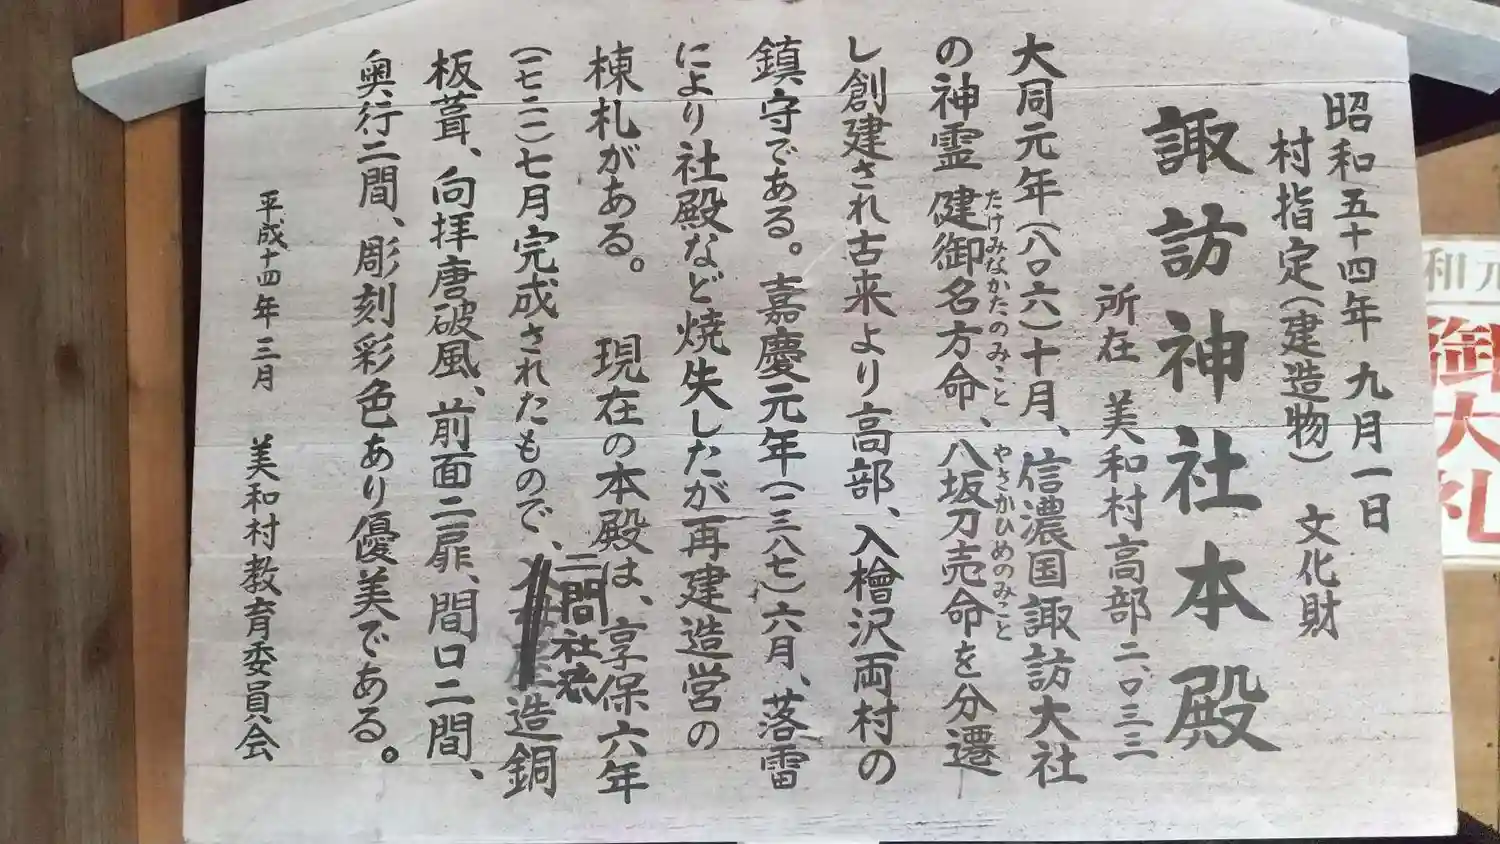 昭和五十四年九月一日
村指定(建造物) 文化財
諏訪神社本殿
所在 美和村高部二、〇三三
大同元年(八〇六)十月、信濃国諏訪大社
の神霊 健御名方命、八坂刀売命を分遷
たけみなかたのみこと
やさかひめのみこと
し創建され古来より高部、入檜沢両村の
鎮守である。嘉慶元年(一三八七)六月、落雷
により社殿など焼失したが再建造営の
棟札がある。 現在の本殿は、享保六年
(一七二一)七月完成されたもので、二間社流造銅
板葺、向拝唐破風、前面二扉、間口二間、
奥行二間、彫刻彩色あり優美である。
平成十四年三月 美和村教育委員会
和元
御大礼